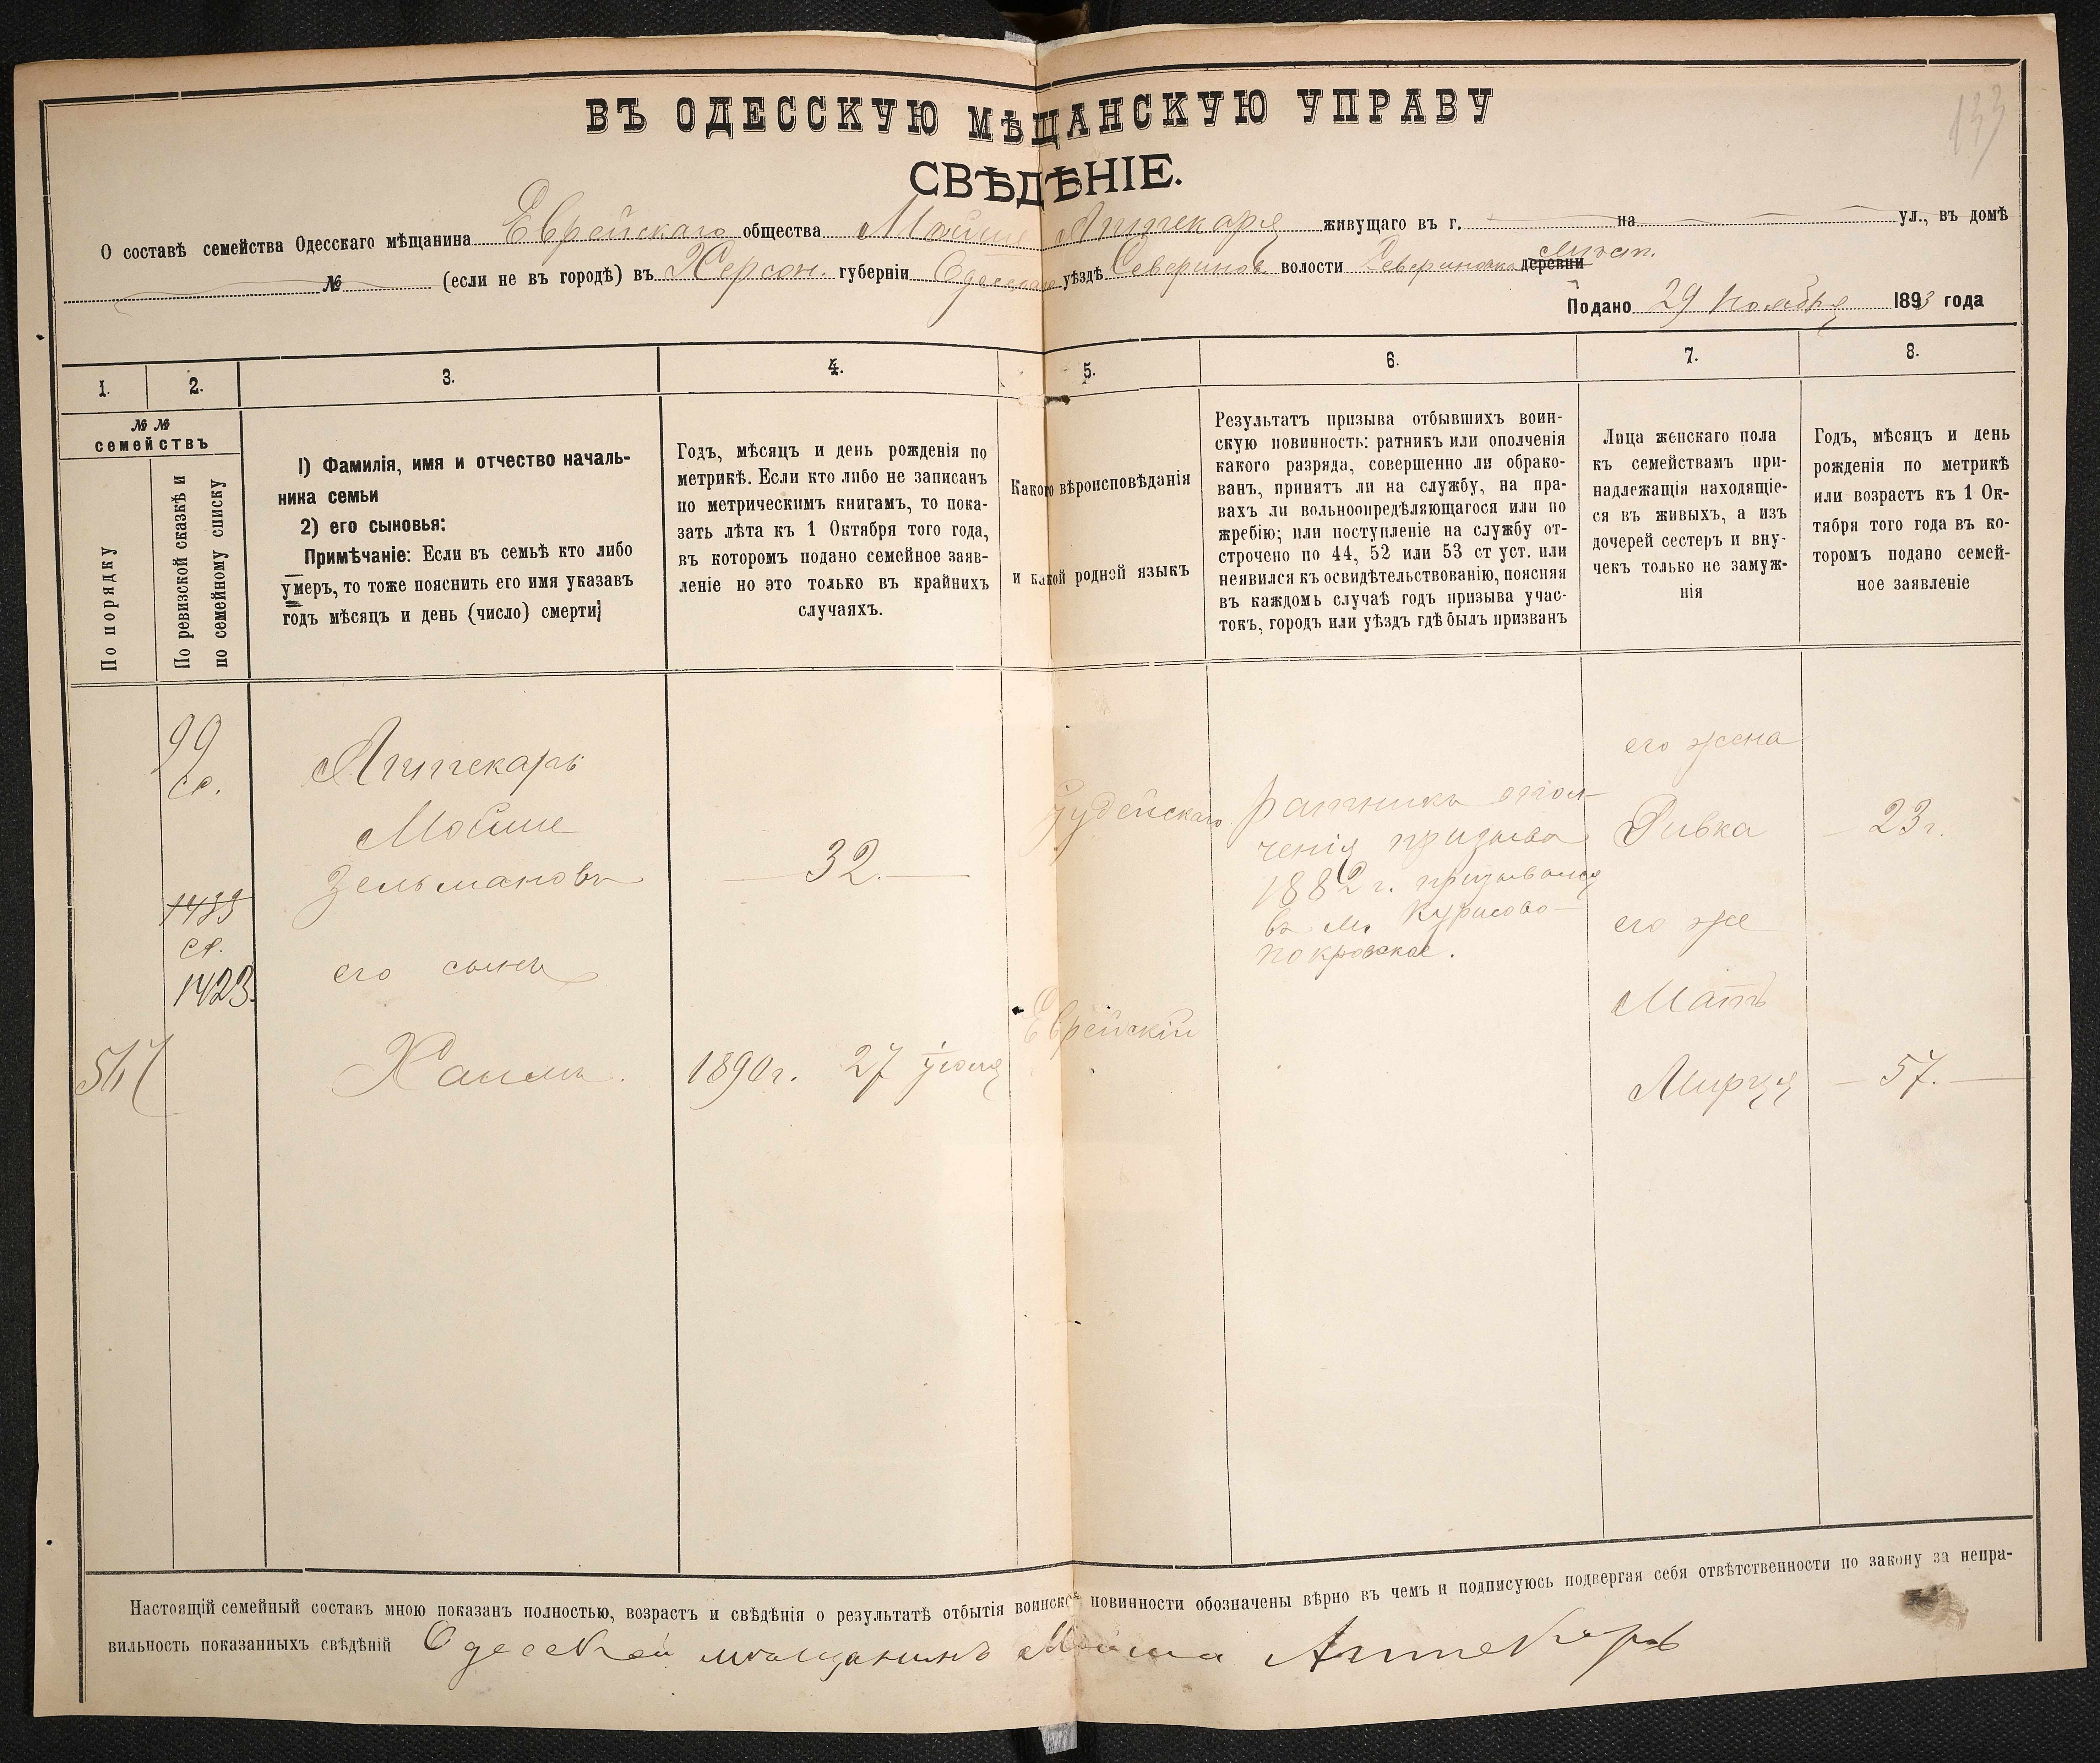 133
ВЪ ОДЕССКУЮ МѢЩАНСКУЮ УПРАВУ
СВѢДѢНІЕ.
О составѣ семейства Одесскаго мѣщанина Еврейскаго общества Мойше Аптекаря живущаго въ г. на ул., въ домѣ
№ (если не въ городѣ) въ Херсон. губерніи Одесскаго уѣздѣ Северинов волости Севериновка деревни мѣст.
Подано 29 Ноября 1893 года
1.
2.
3.
4.
5.
6.
7.
8.
№ №
семействъ
По порядку
По ревизской сказкѣ и
по семейному списку
1) Фамилія, имя и отчество началь-
ника семьи
2) его сыновья:
Примѣчаніе: Если въ семьѣ кто либо
умеръ, то тоже пояснить его имя указавъ
годъ мѣсяцъ и день (число) смерти;
Годъ, мѣсяцъ и день рожденія по
метрикѣ. Если кто либо не записанъ
по метрическимъ книгамъ, то пока-
зать лѣта къ 1 Октября того года,
въ которомъ подано семейное заяв-
леніе но это только въ крайнихъ
случаяхъ.
Какого вѣроисповѣданія
и какой родной языкъ
Результатъ призыва отбывшихъ воин-
скую повинность: ратникъ или ополченія
какого разряда, совершенно ли обрако-
ванъ, принятъ ли на службу, на пра-
вахъ ли вольноопредѣляющагося или по
жребію; или поступленіе на службу от-
строчено по 44, 52 или 53 ст уст. или
неявился къ освидѣтельствованію, поясняя
въ каждомъ случаѣ годъ призыва учас-
токъ, городъ или уѣздъ гдѣ былъ призванъ
Лица женскаго пола
къ семействамъ при-
надлежащія находящіе-
ся въ живыхъ, а изъ
дочерей сестеръ и вну-
чекъ только не замуж-
нія
Годъ, мѣсяцъ и день
рожденія по метрикѣ
или возрастъ къ 1 Ок-
тября того года въ ко-
торомъ подано семей-
ное заявленіе
99
1423.
Аптекарь
Мойше
Зельмановъ
его сынъ
Хаимъ.
32.
1890 г. 27 Іюля
Іудейскаго
Еврейскій
ратникъ опол-
ченія призыва
1882 г. призывался
въ м. Курисово-
Покровское.
его жена
Ривка
23 г.
его же
Мать
57.
Настоящій семейный составъ мною показанъ полностью, возрастъ и свѣдѣнія о результатѣ отбытія воинской повинности обозначены вѣрно въ чемъ и подписуюсь подвергая себя отвѣтственности по закону за непра-
вильность показанныхъ свѣдѣній Одесской мѣщанинъ Мойша Аптекарь